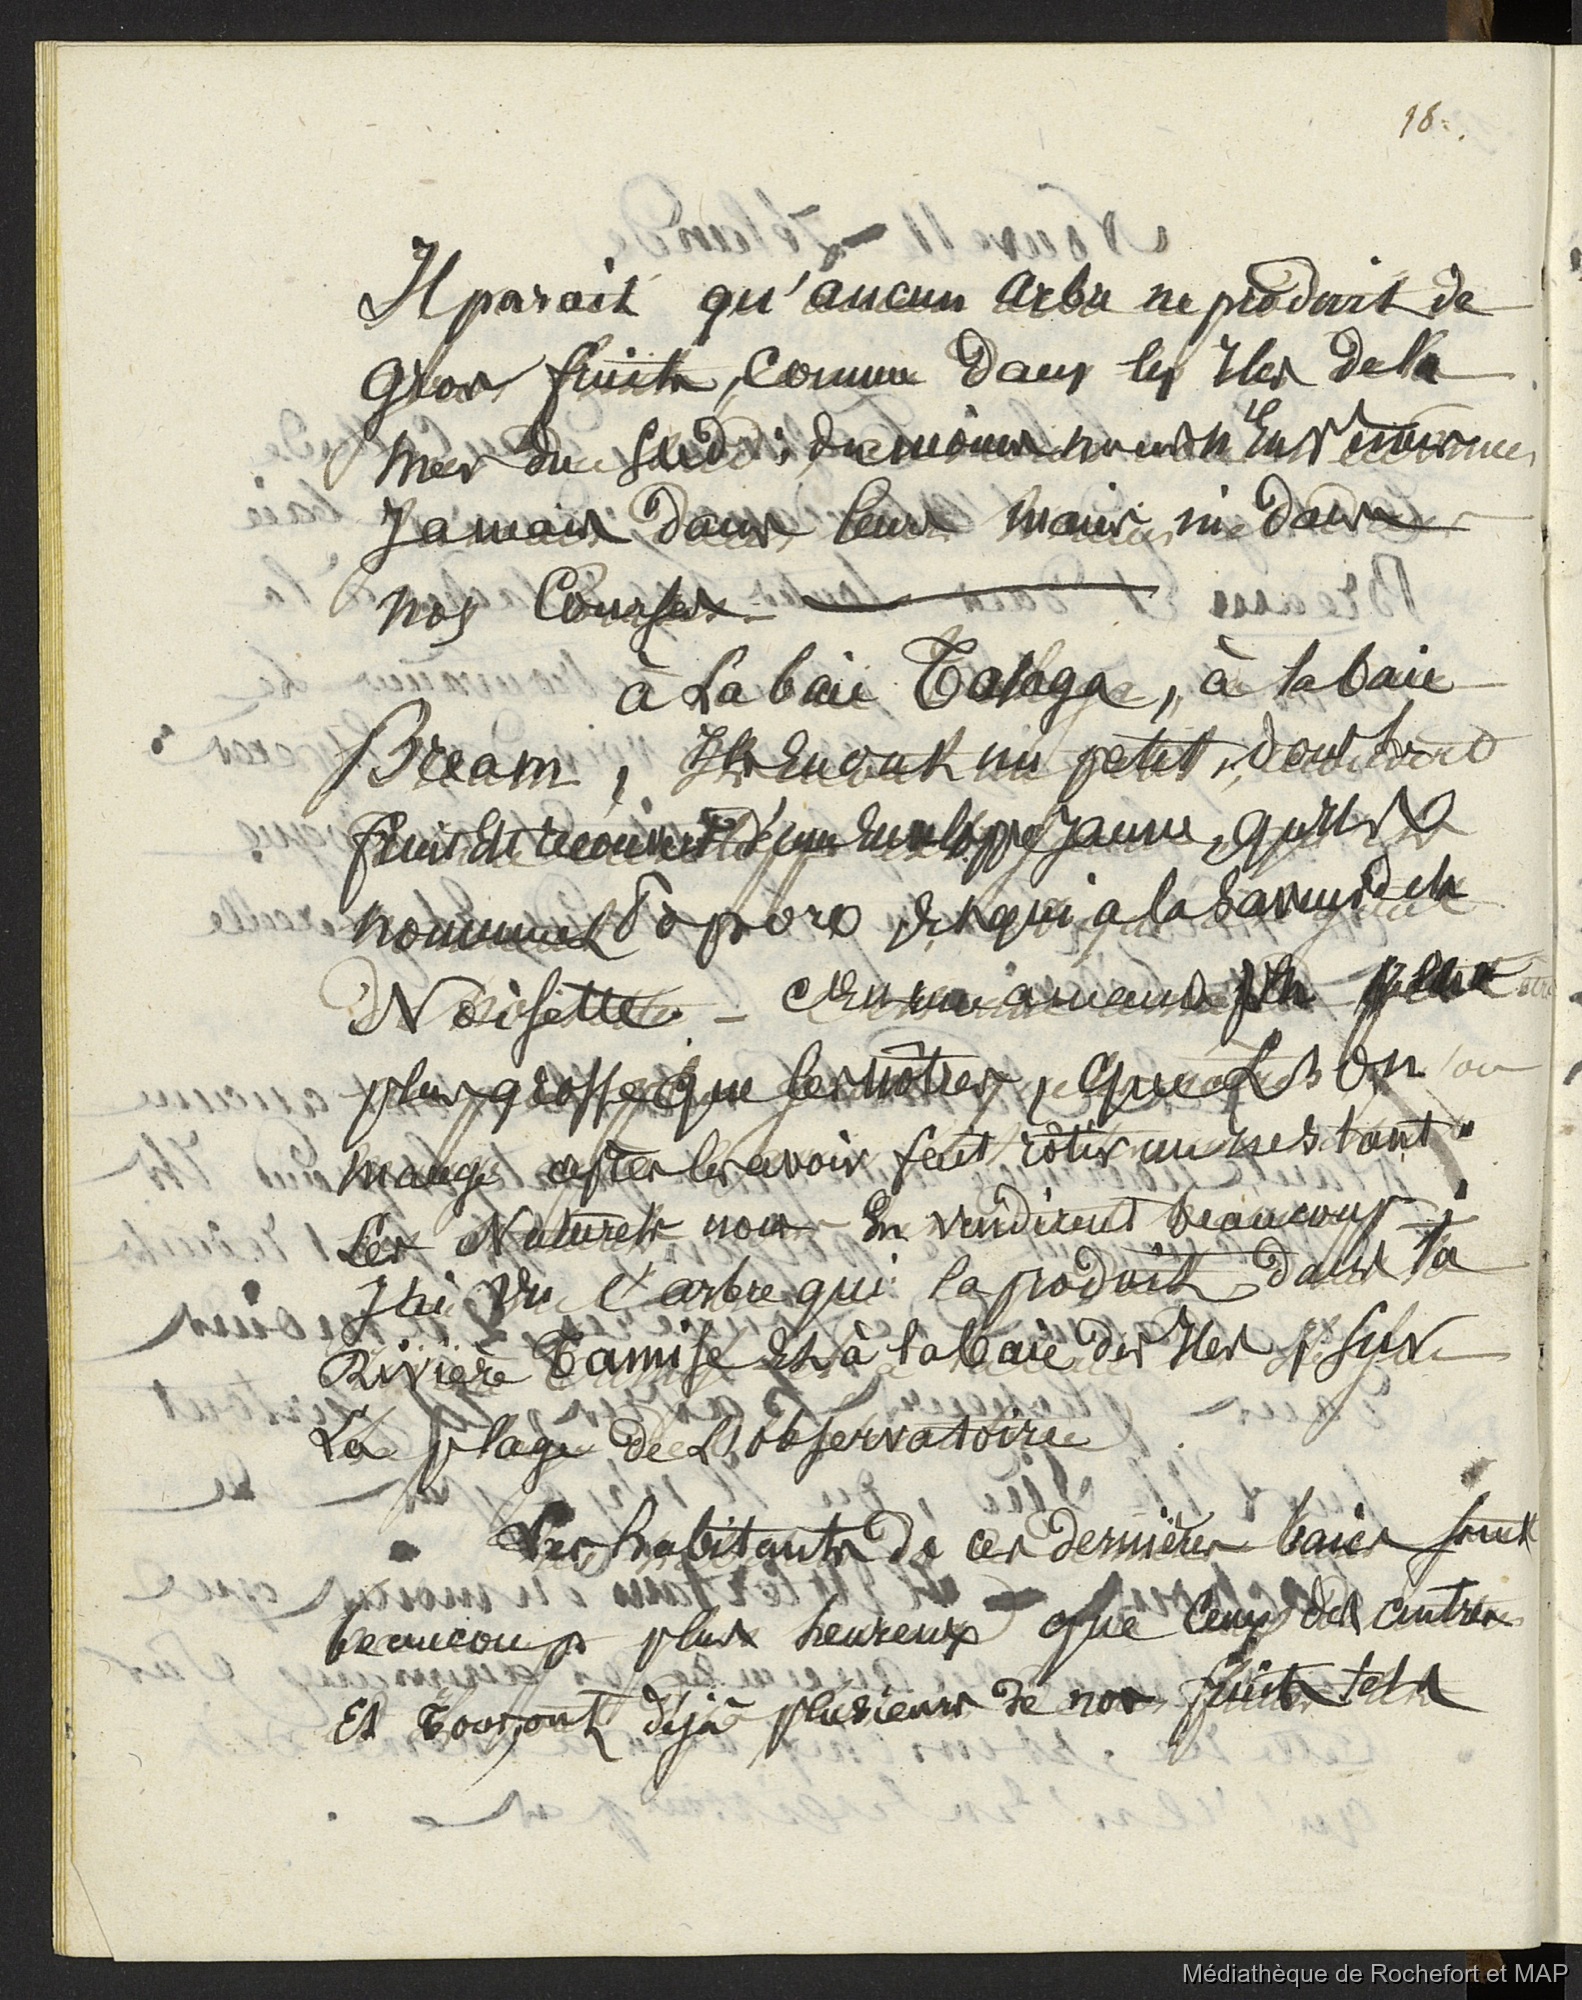 18.
Il parait qu'aucun arbre ne produit de
gros fruits, comme dans les Iles de la
mer du Sud; du moins nous n'en vimes
Jamais dans leurs mains, ni dans
nos Courses.
à La baie Tolaga, à la baie
Bream, Ils en ont un petit, dont le
fruit est recouvert d'une enveloppe jaune, qu'ils
nomment Poporo et qui a la saveur de la
Noisette. - C'est une amande
plus grosse que les nôtres, que L'on
mange après les avoir fait rôtir un instant.
Les Naturels nous en vendirent beaucoup
J'ai vu l'arbre qui la produit dans la
Rivière Tamise et à la baie des Iles, sur
La plage de L'observatoire
Les habitants de ces dernières baies sont
beaucoup plus heureux que ceux des autres
et ont déjà plusieurs de nos fruits tels
Médiathèque de Rochefort et MAP